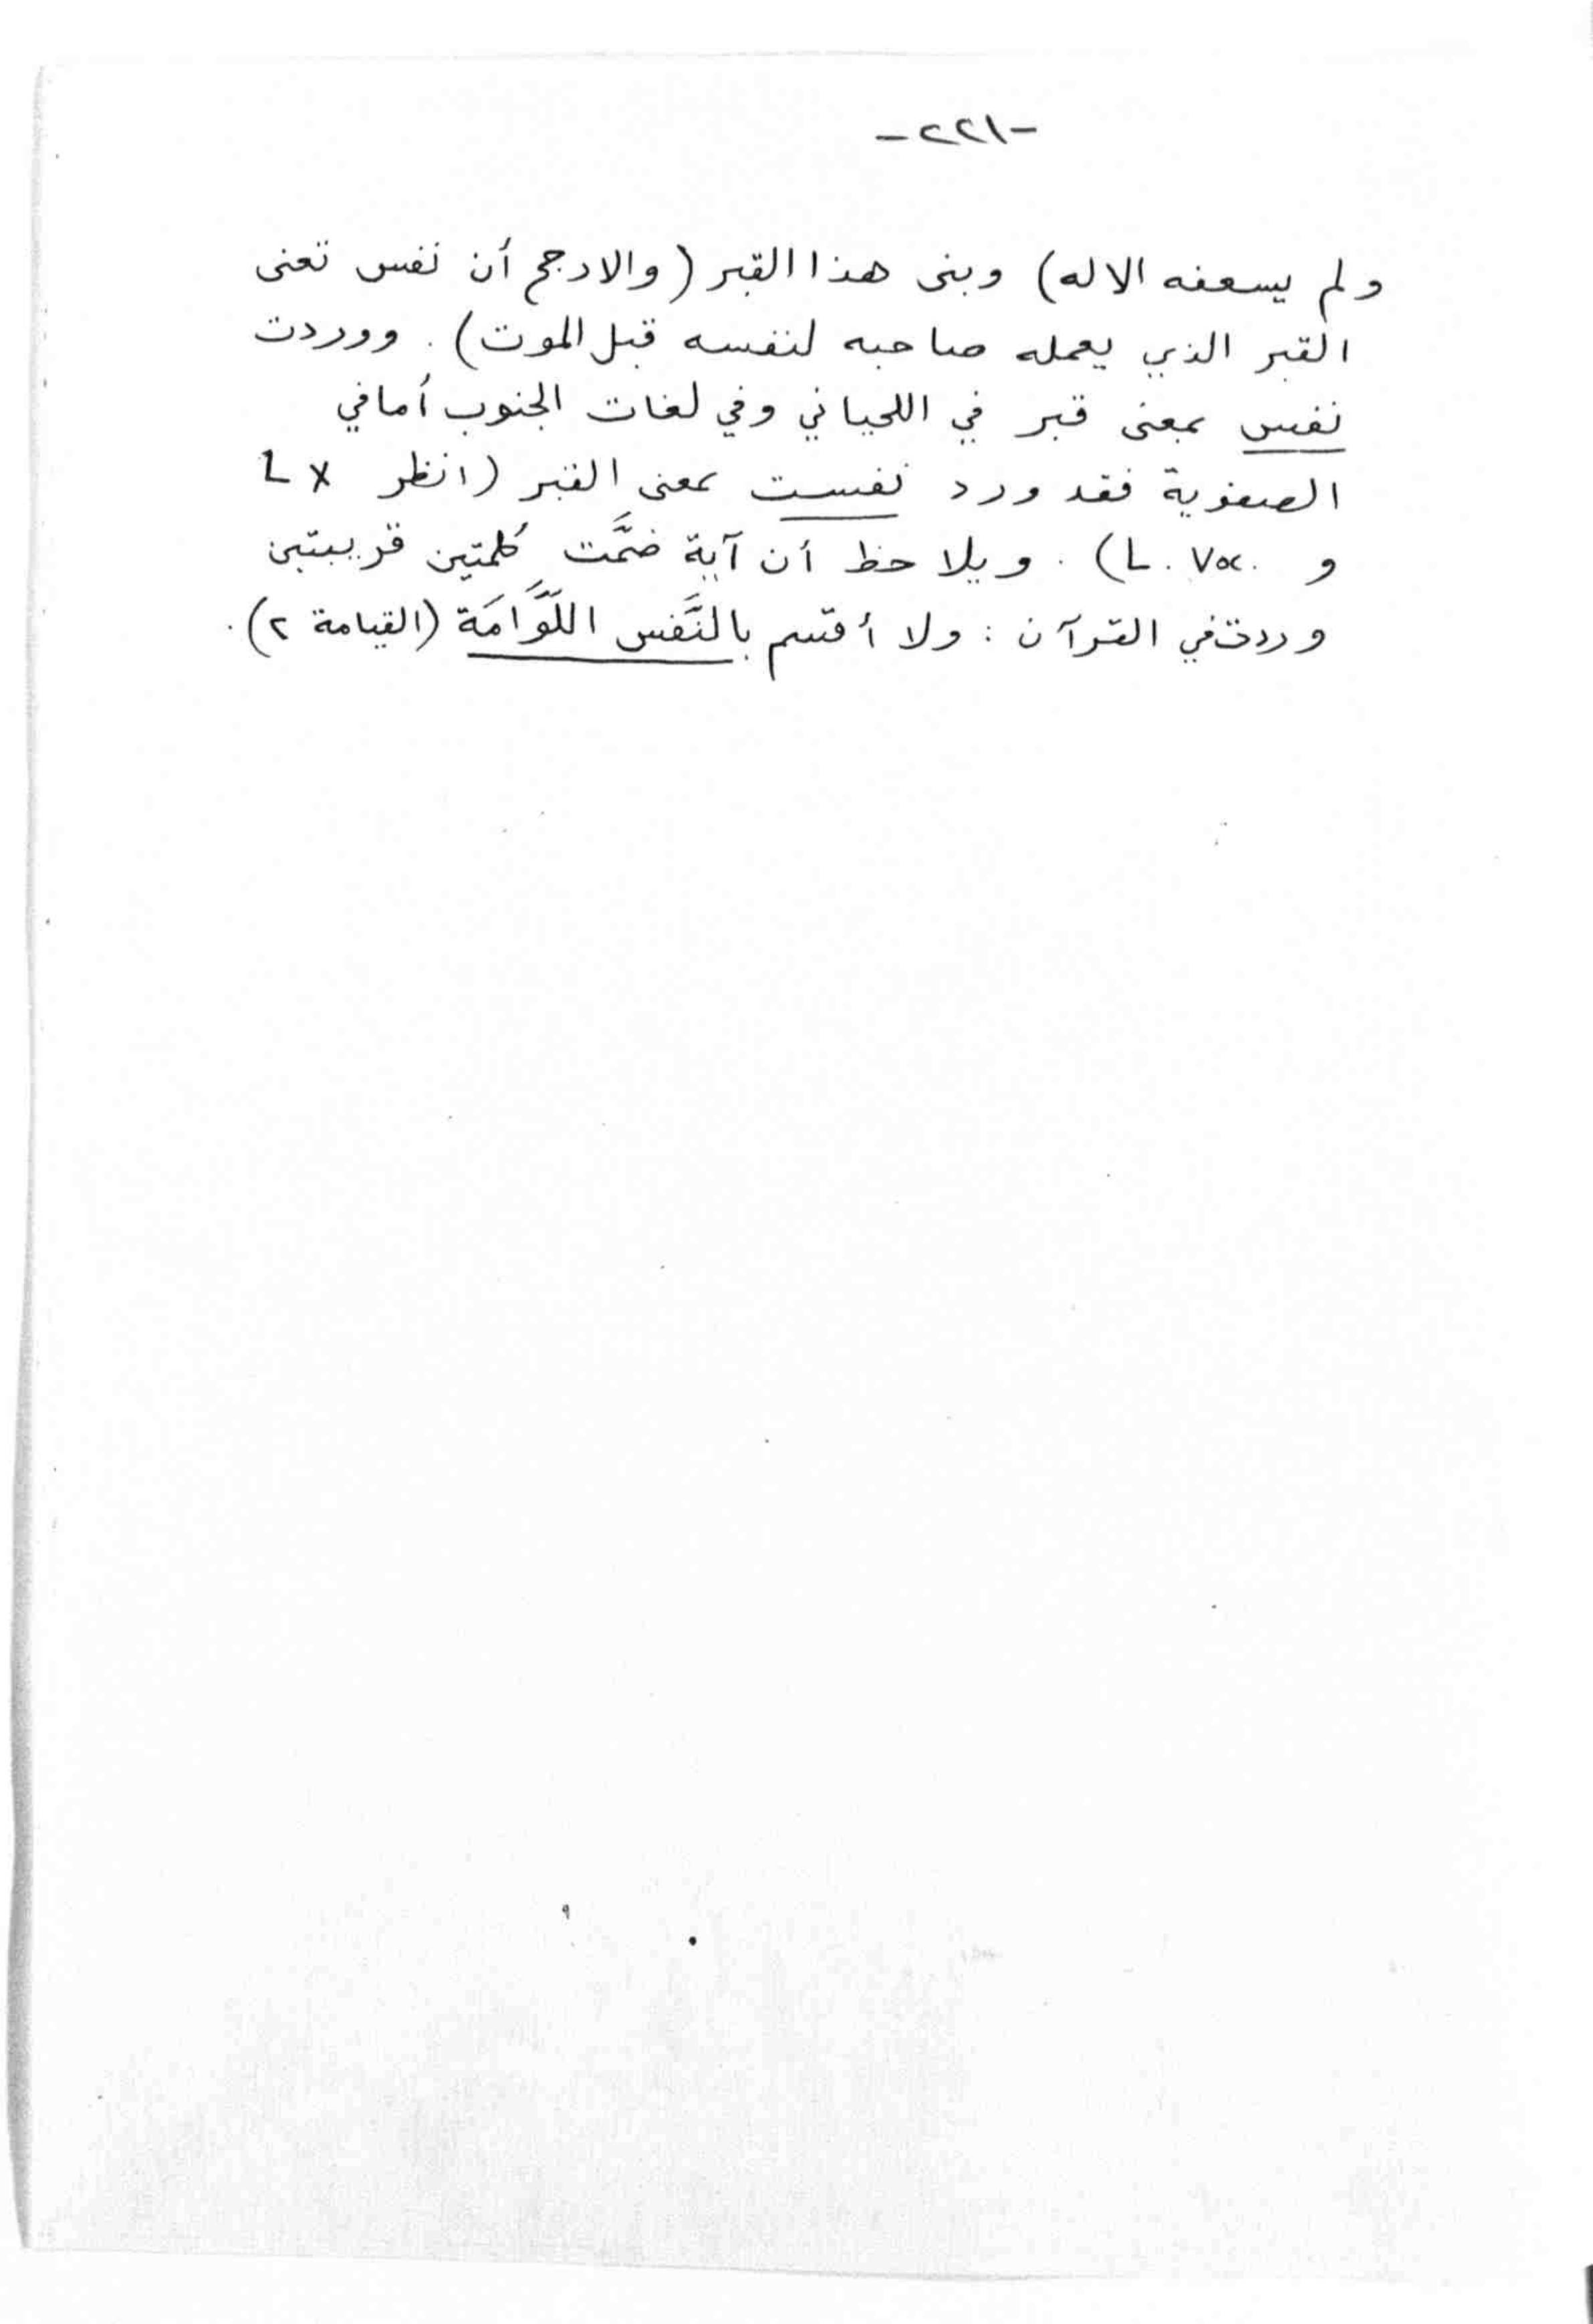 -٢٢١-
ولم يسعفه الاله) وبنى هذا القبر (والارجح أن نفس تعنى
القبر الذي يعمله صاحبه لنفسه قبل الموت). ووردت
نفس بمعنى قبر في اللحياني وفي لغات الجنوب أما في
الصفوية فقد ورد نفست بمعنى القبر (انظر LX
و L. Voc.). ويلاحظ أن آية ضمَّت كلمتين قريبتين
وردت في القرآن: ولا أقسم بالنَّفس اللَّوَّامَة (القيامة ٢).